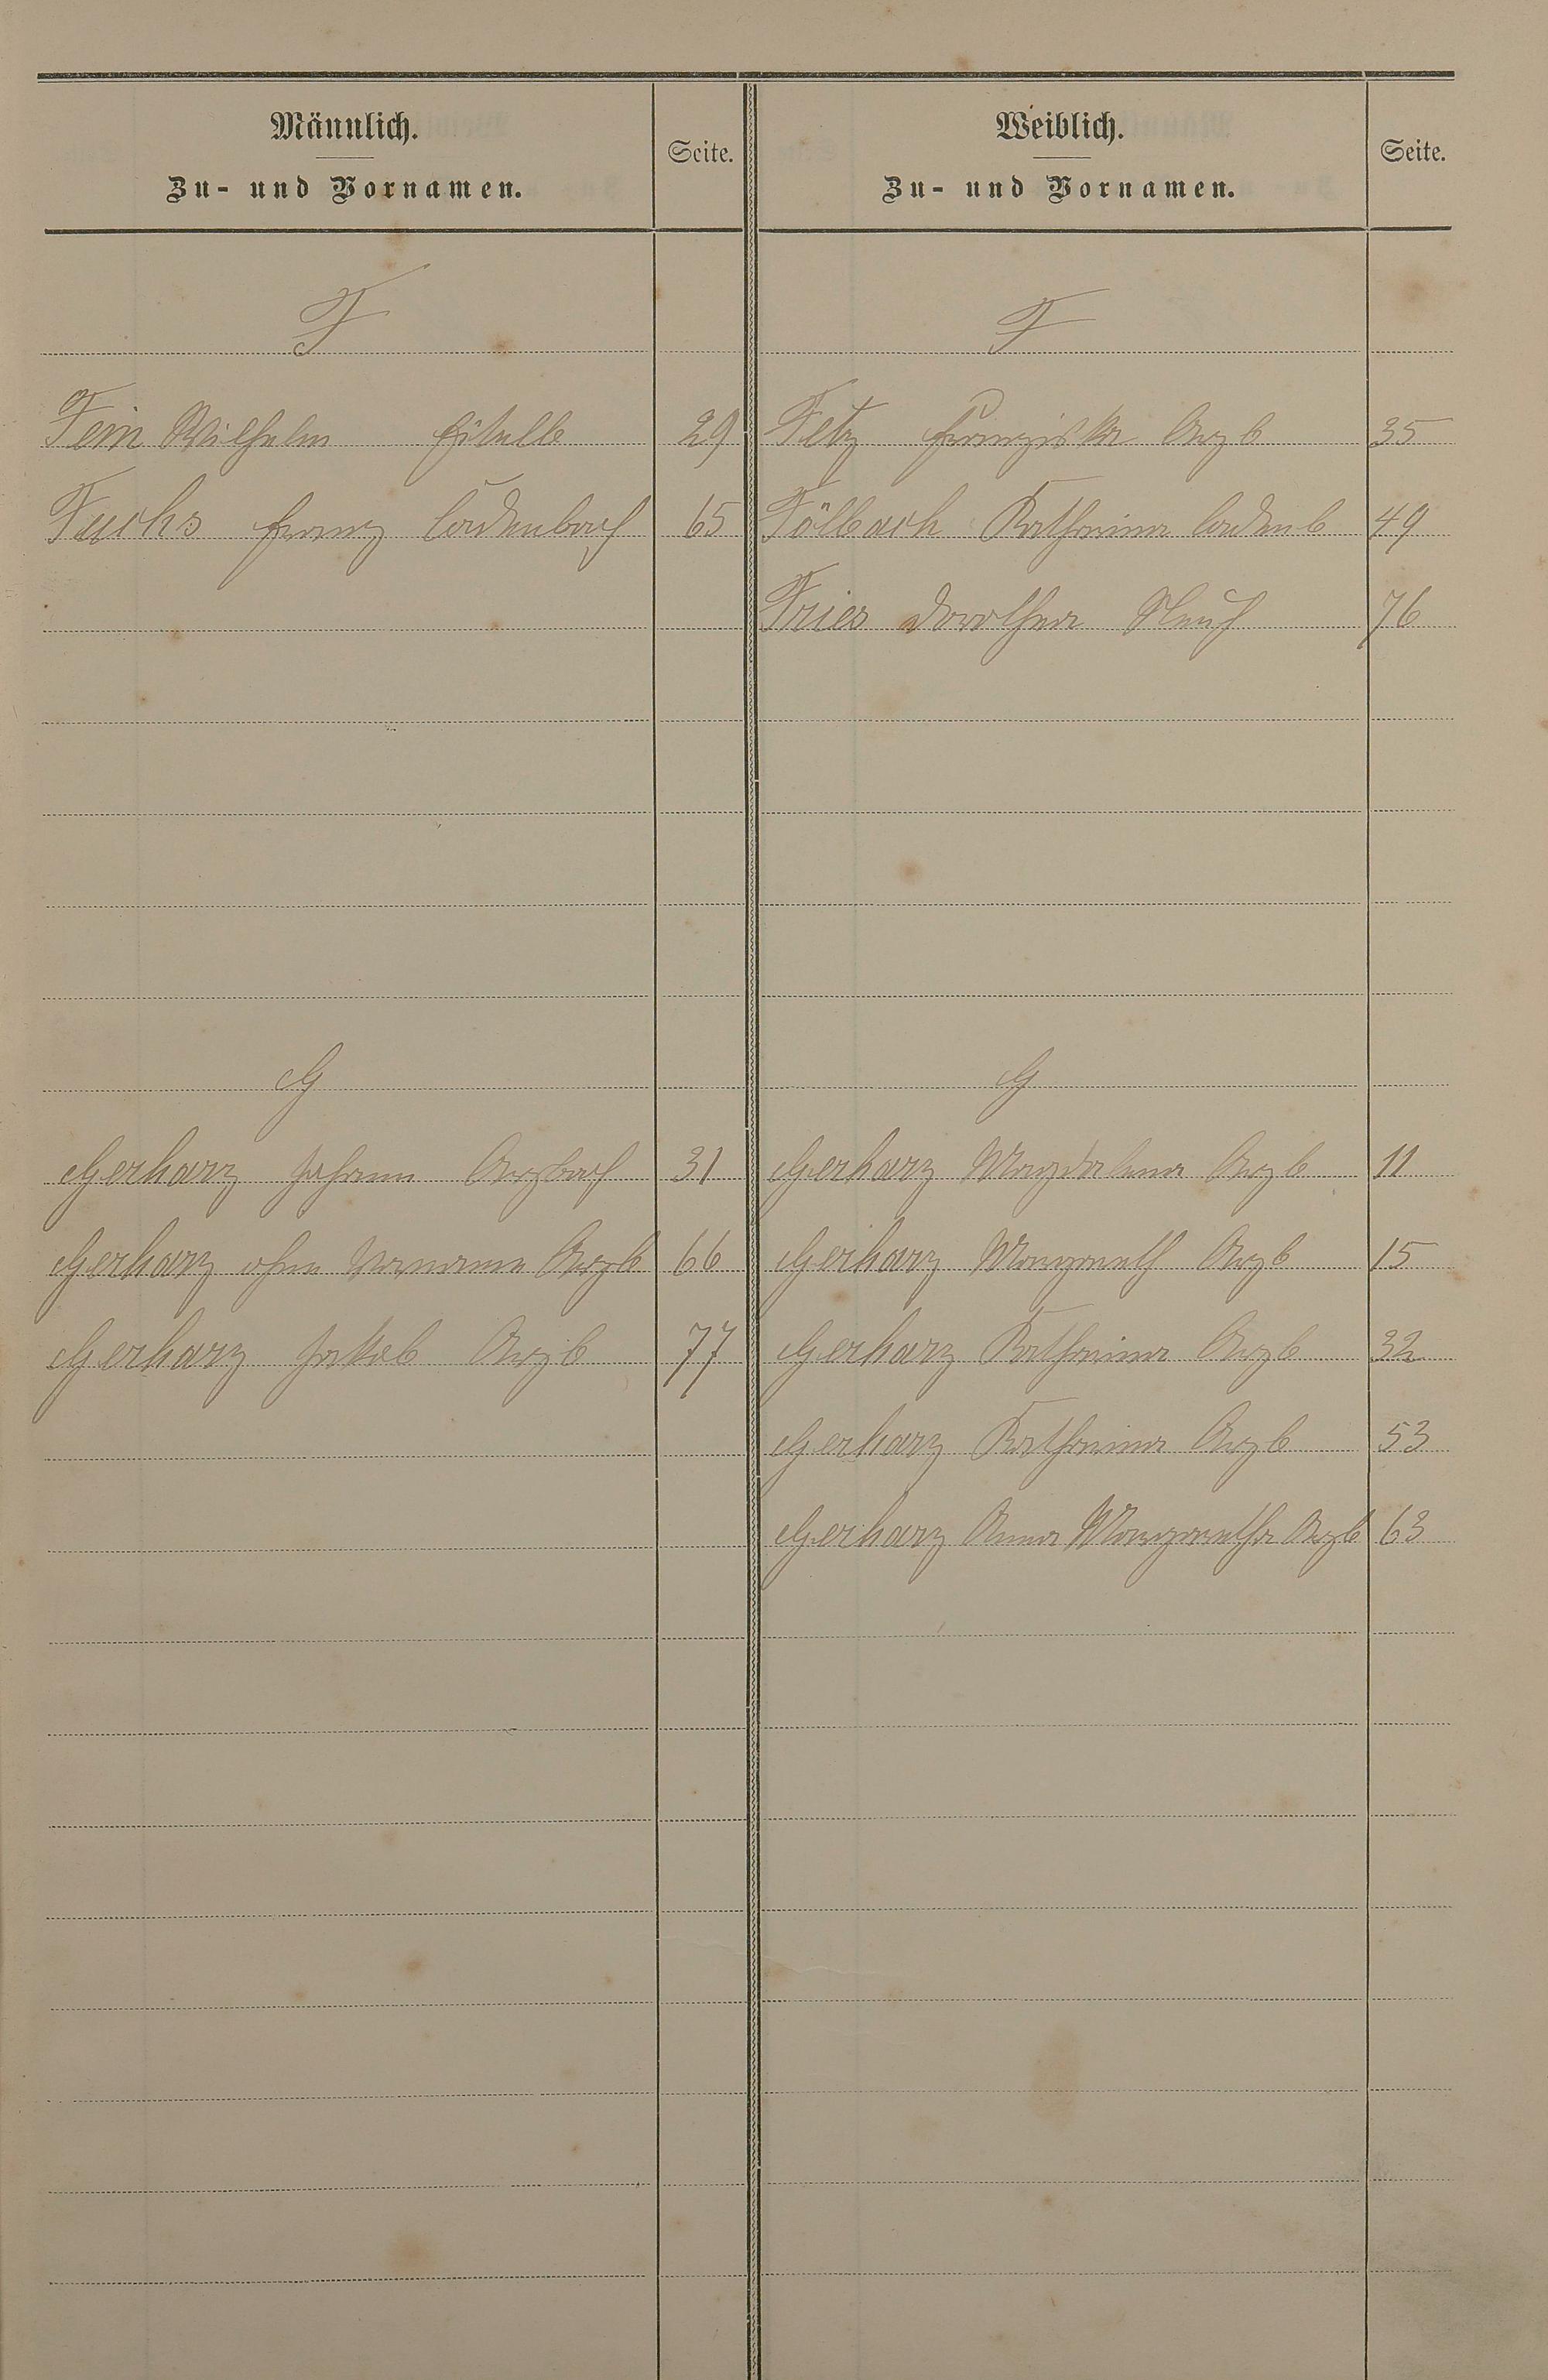 Männlich.
Zu- und Vornamen.
Seite.
Weiblich.
Zu- und Vornamen.
Seite.
F
F
Fein Wilhelm Eitelb 29
Fetz Franziska Arzb 35
Fuchs Franz Cadenbach 65
Fölbach Katharina Cadenb 49
Fries Dorothea Neuh 76
G
G
Gerharz Johann Arzbach 31
Gerharz Magdalena Arzb 11
Gerharz ohne Vornamen Arzb 66
Gerharz Margareth Arzb 15
Gerharz Jakob Arzb 77
Gerharz Katharina Arzb 32
Gerharz Katharina Arzb 53
Gerharz Anna Margaretha Arzb 63